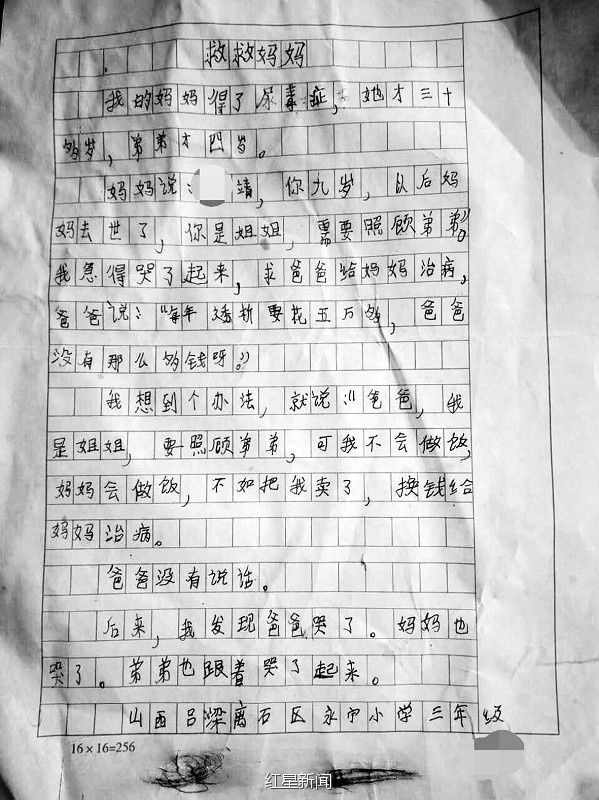 救救妈妈
我的妈妈得了尿毒症，她才三十
多岁，弟弟才四岁。
妈妈说：靖，你九岁，以后妈
妈去世了，你是姐姐，需要照顾弟弟。”
我急得哭了起来，求爸爸给妈妈治病，
爸爸说：“每年透析要花五万多，爸爸
没有那么多钱呀。”
我想到个办法，就说“爸爸，我
是姐姐，要照顾弟弟，可我不会做饭，
妈妈会做饭，不如把我卖了，换钱给
妈妈治病。
爸爸没有说话。
后来，我发现爸爸哭了。妈妈也
哭了。弟弟也跟着哭了起来。
山西吕梁离石区永宁小学三年级
16×16=256
红星新闻